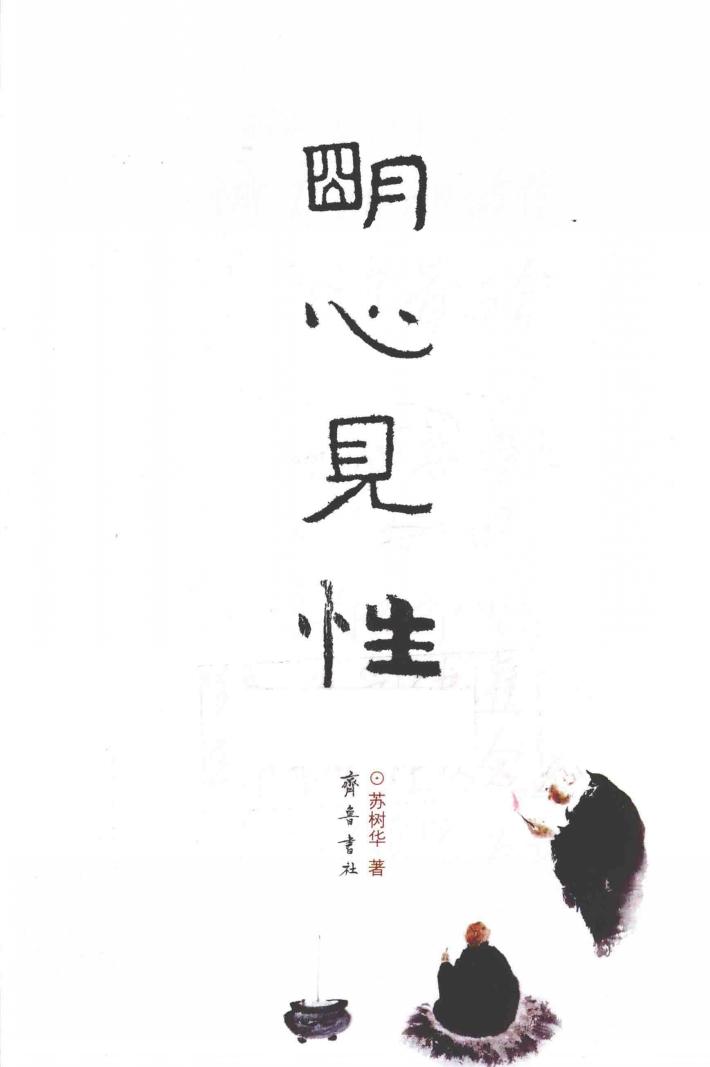 明心見性
⊙苏树华 著
齊魯書社